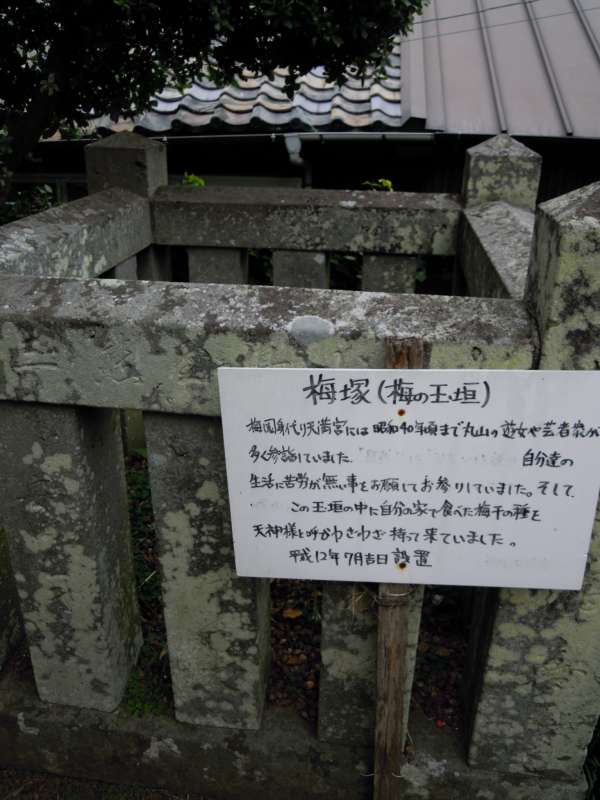 梅塚(梅の玉垣)
梅園身代り天満宮には昭和40年頃まで丸山の遊女や芸者衆が
多く参詣していました 自分達の
生活に苦労が無い事をお願してお参りしていました。そして、
この玉垣の中に自分の家で食べた梅干の種を
天神様と呼かわざわざ持って来ていました。
平成12年7月吉日設置